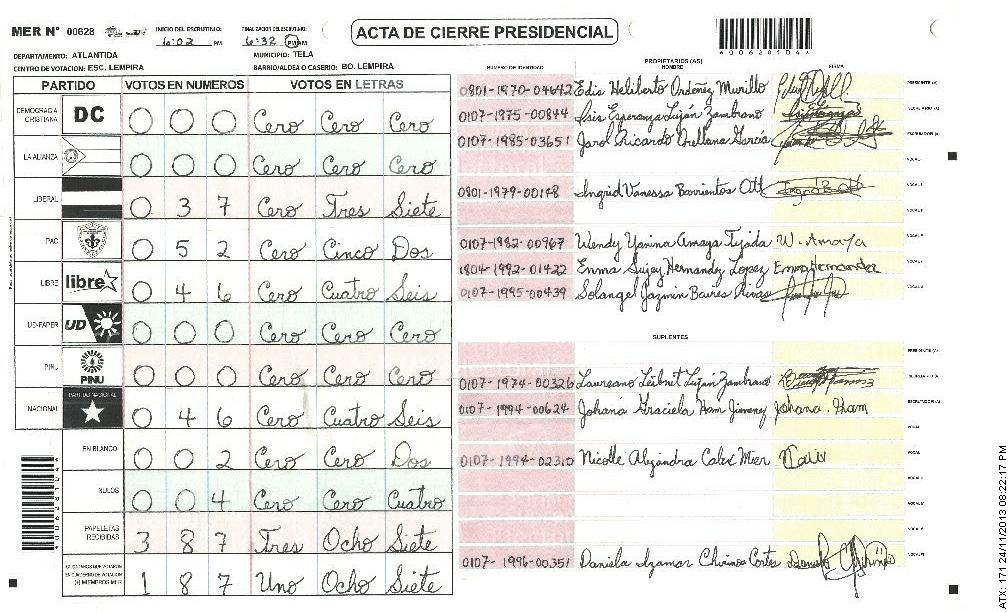 MER Nº 00628
INICIO DEL ESCRUTINIO: 6:02 PM
FINALIZACION DEL ESCRUTINIO: 6:32 PM
ACTA DE CIERRE PRESIDENCIAL
DEPARTAMENTO: ATLANTIDA
MUNICIPIO: TELA
CENTRO DE VOTACION: ESC. LEMPIRA
BARRIO/ALDEA O CASERIO: BO. LEMPIRA
PARTIDO VOTOS EN NUMEROS VOTOS EN LETRAS
DEMOCRACIA CRISTIANA DC 0 0 0 Cero Cero Cero
LA ALIANZA 0 0 0 Cero Cero Cero
LIBERAL 0 3 7 Cero Tres Siete
PAC 0 5 2 Cero Cinco Dos
LIBRE libre 0 4 6 Cero Cuatro Seis
UD-FAPER UD 0 0 0 Cero Cero Cero
PINU PINU 0 0 0 Cero Cero Cero
NACIONAL PARTIDO NACIONAL 0 4 6 Cero Cuatro Seis
EN BLANCO 0 0 2 Cero Cero Dos
NULOS 0 0 4 Cero Cero Cuatro
PAPELETAS RECIBIDAS 3 8 7 Tres Ocho Siete
CIUDADANOS QUE VOTARON EN CUADERNO DE VOTACION (+) MIEMBROS MER 1 8 7 Uno Ocho Siete
PROPIETARIOS (AS)
NUMERO DE IDENTIDAD NOMBRE FIRMA
0801-1970-04642 Edis Heliberto Ordoñez Murillo
0107-1975-00844 Isis Esperanza Luján Zambrano
0107-1985-03651 Jarol Ricardo Orellana García
0801-1979-00148 Ingrid Vanessa Barrientos Ott
0107-1982-00967 Wendy Yanina Amaya Tejada W. Amaya
1804-1992-01422 Emma Sujey Hernandez Lopez Emma Hernandez
0107-1995-00439 Solangel Jazmin Baires Rivas
SUPLENTES
0107-1974-00326 Laureano Leibnit Luján Zambrano
0107-1994-00624 Johana Graciela Ham Jimenez Johana Ham
0107-1994-02310 Nicolle Alejandra Calex Mier
0107-1996-00351 Daniela Izamar Chirinos Cortes
ATX: 171 24/11/2013 08:22:17 PM